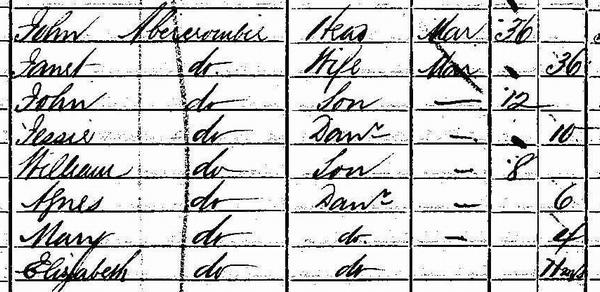 John Abercrombie Head Mar 36
Janet do. Wife Mar 36
John do Son — 12
Jessie do Daur — 10
William do Son — 8
Agnes do Daur — 6
Mary do do. — 4
Elizabeth do do